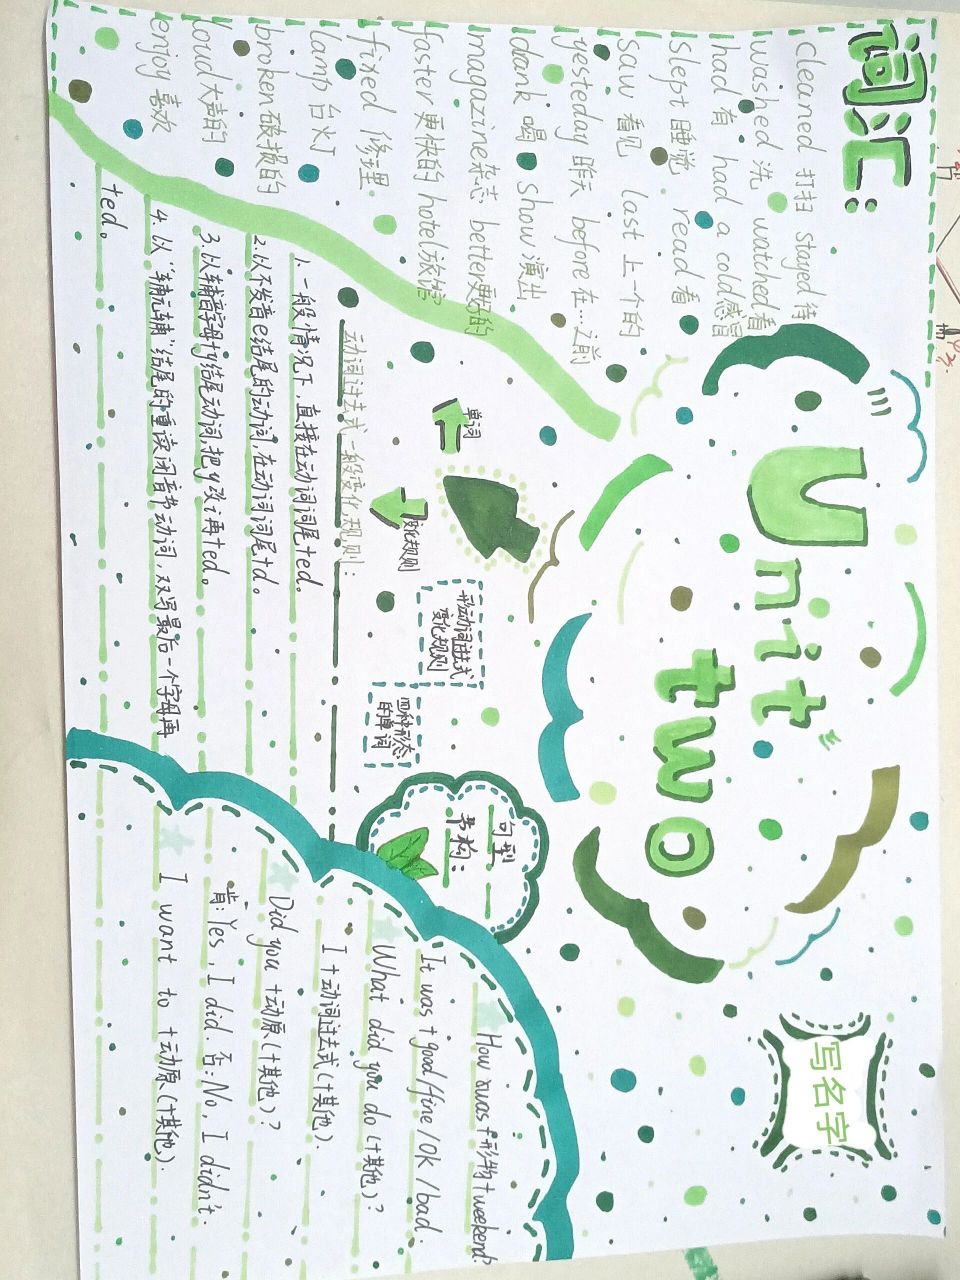 Unit
two
写名字
词汇:
cleaned 打扫 stayed 待
washed 洗 watched 看
had 有 had a cold 感冒
slept 睡觉 read 看
saw 看见 last 上一个的
yesteday 昨天 before 在…之前
dank 喝 show 演出
magazine 杂志 better 更好的
faster 更快的 hotel 旅馆
fixed 修理
lamp 台灯
broken 破损的
loud 大声的
enjoy 喜欢
单词
变化规则
形动词过去式
变化规则
四种形态
的单词
动词过去式一般变化规则:
1.一般情况下,直接在动词词尾+ed。
2.以不发音e结尾的动词,在动词词尾+d。
3.以辅音字母+y结尾动词,把y改i再+ed。
4.以“辅元辅”结尾的重读闭音节动词,双写最后一个字母再
+ed。
句型
节构:
How was+形物+weekend?
It was+good/fine/ok/bad.
What did you do(+其他)?
I+动词过去式(+其他).
Did you+动原(+其他)?
肯:Yes, I did. 否:No, I didn't.
I want to +动原(+其他).